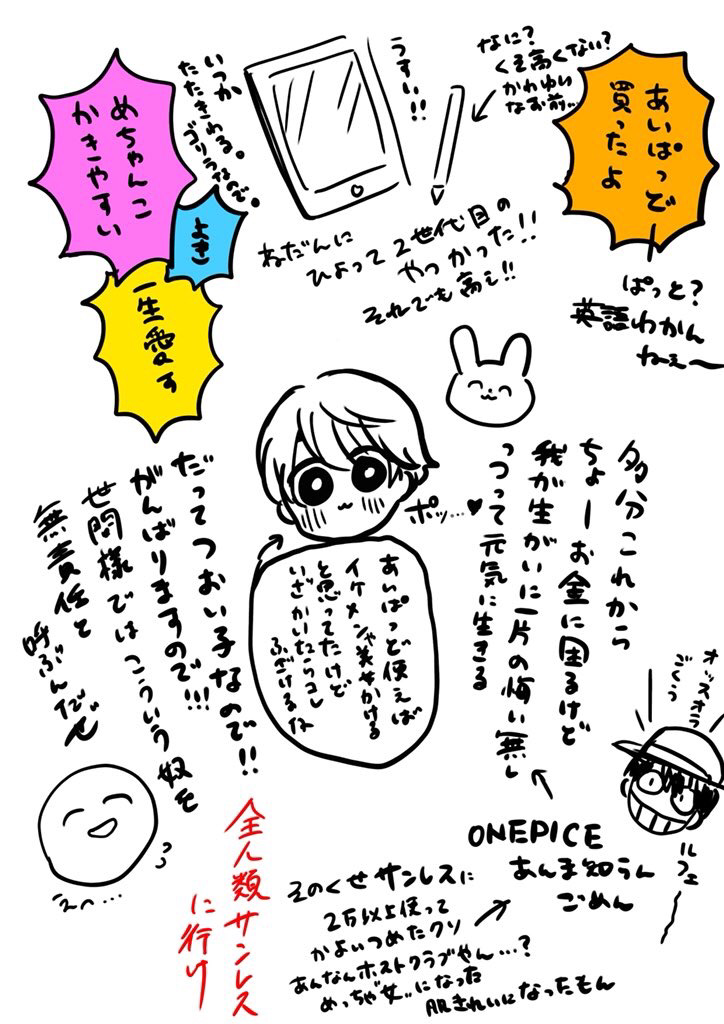 あいぱっど
買ったよ
ぱっと?
英語わかん
ねぇ〜
なに?
くそ高くない?
かわゆい
なお前…
うすい!!
いつか
たたきわる。
ゴリラなので。
めちゃんこ
かきやすい
よき
一生愛す
ねだんに
ひよって2世代目の
やつかった!!
それでも高ぇ!!
多分これから
ちょーお金に困るけど
我が生がいに一片の悔い無し
っつって元気に生きる
ポッ…♥
あいぱっど使えば
イケメンや美女かける
と思ってたけど
いざかいたらコレ
ふざけるな
だってつおい子なので!!
がんばりますので!!!
世間様ではこういう奴を
無責任と
呼ぶんだぜ
えへ…
オッスオラ
ごくう
ルフェー
ONEPICE
あんま知らん
ごめん
そのくせサンレスに
2万以上使って
かよいつめたクソ
あんなんホストクラブやん…?
めっちゃ女"になった
肌きれいになったもん
全人類サンレス
に行け